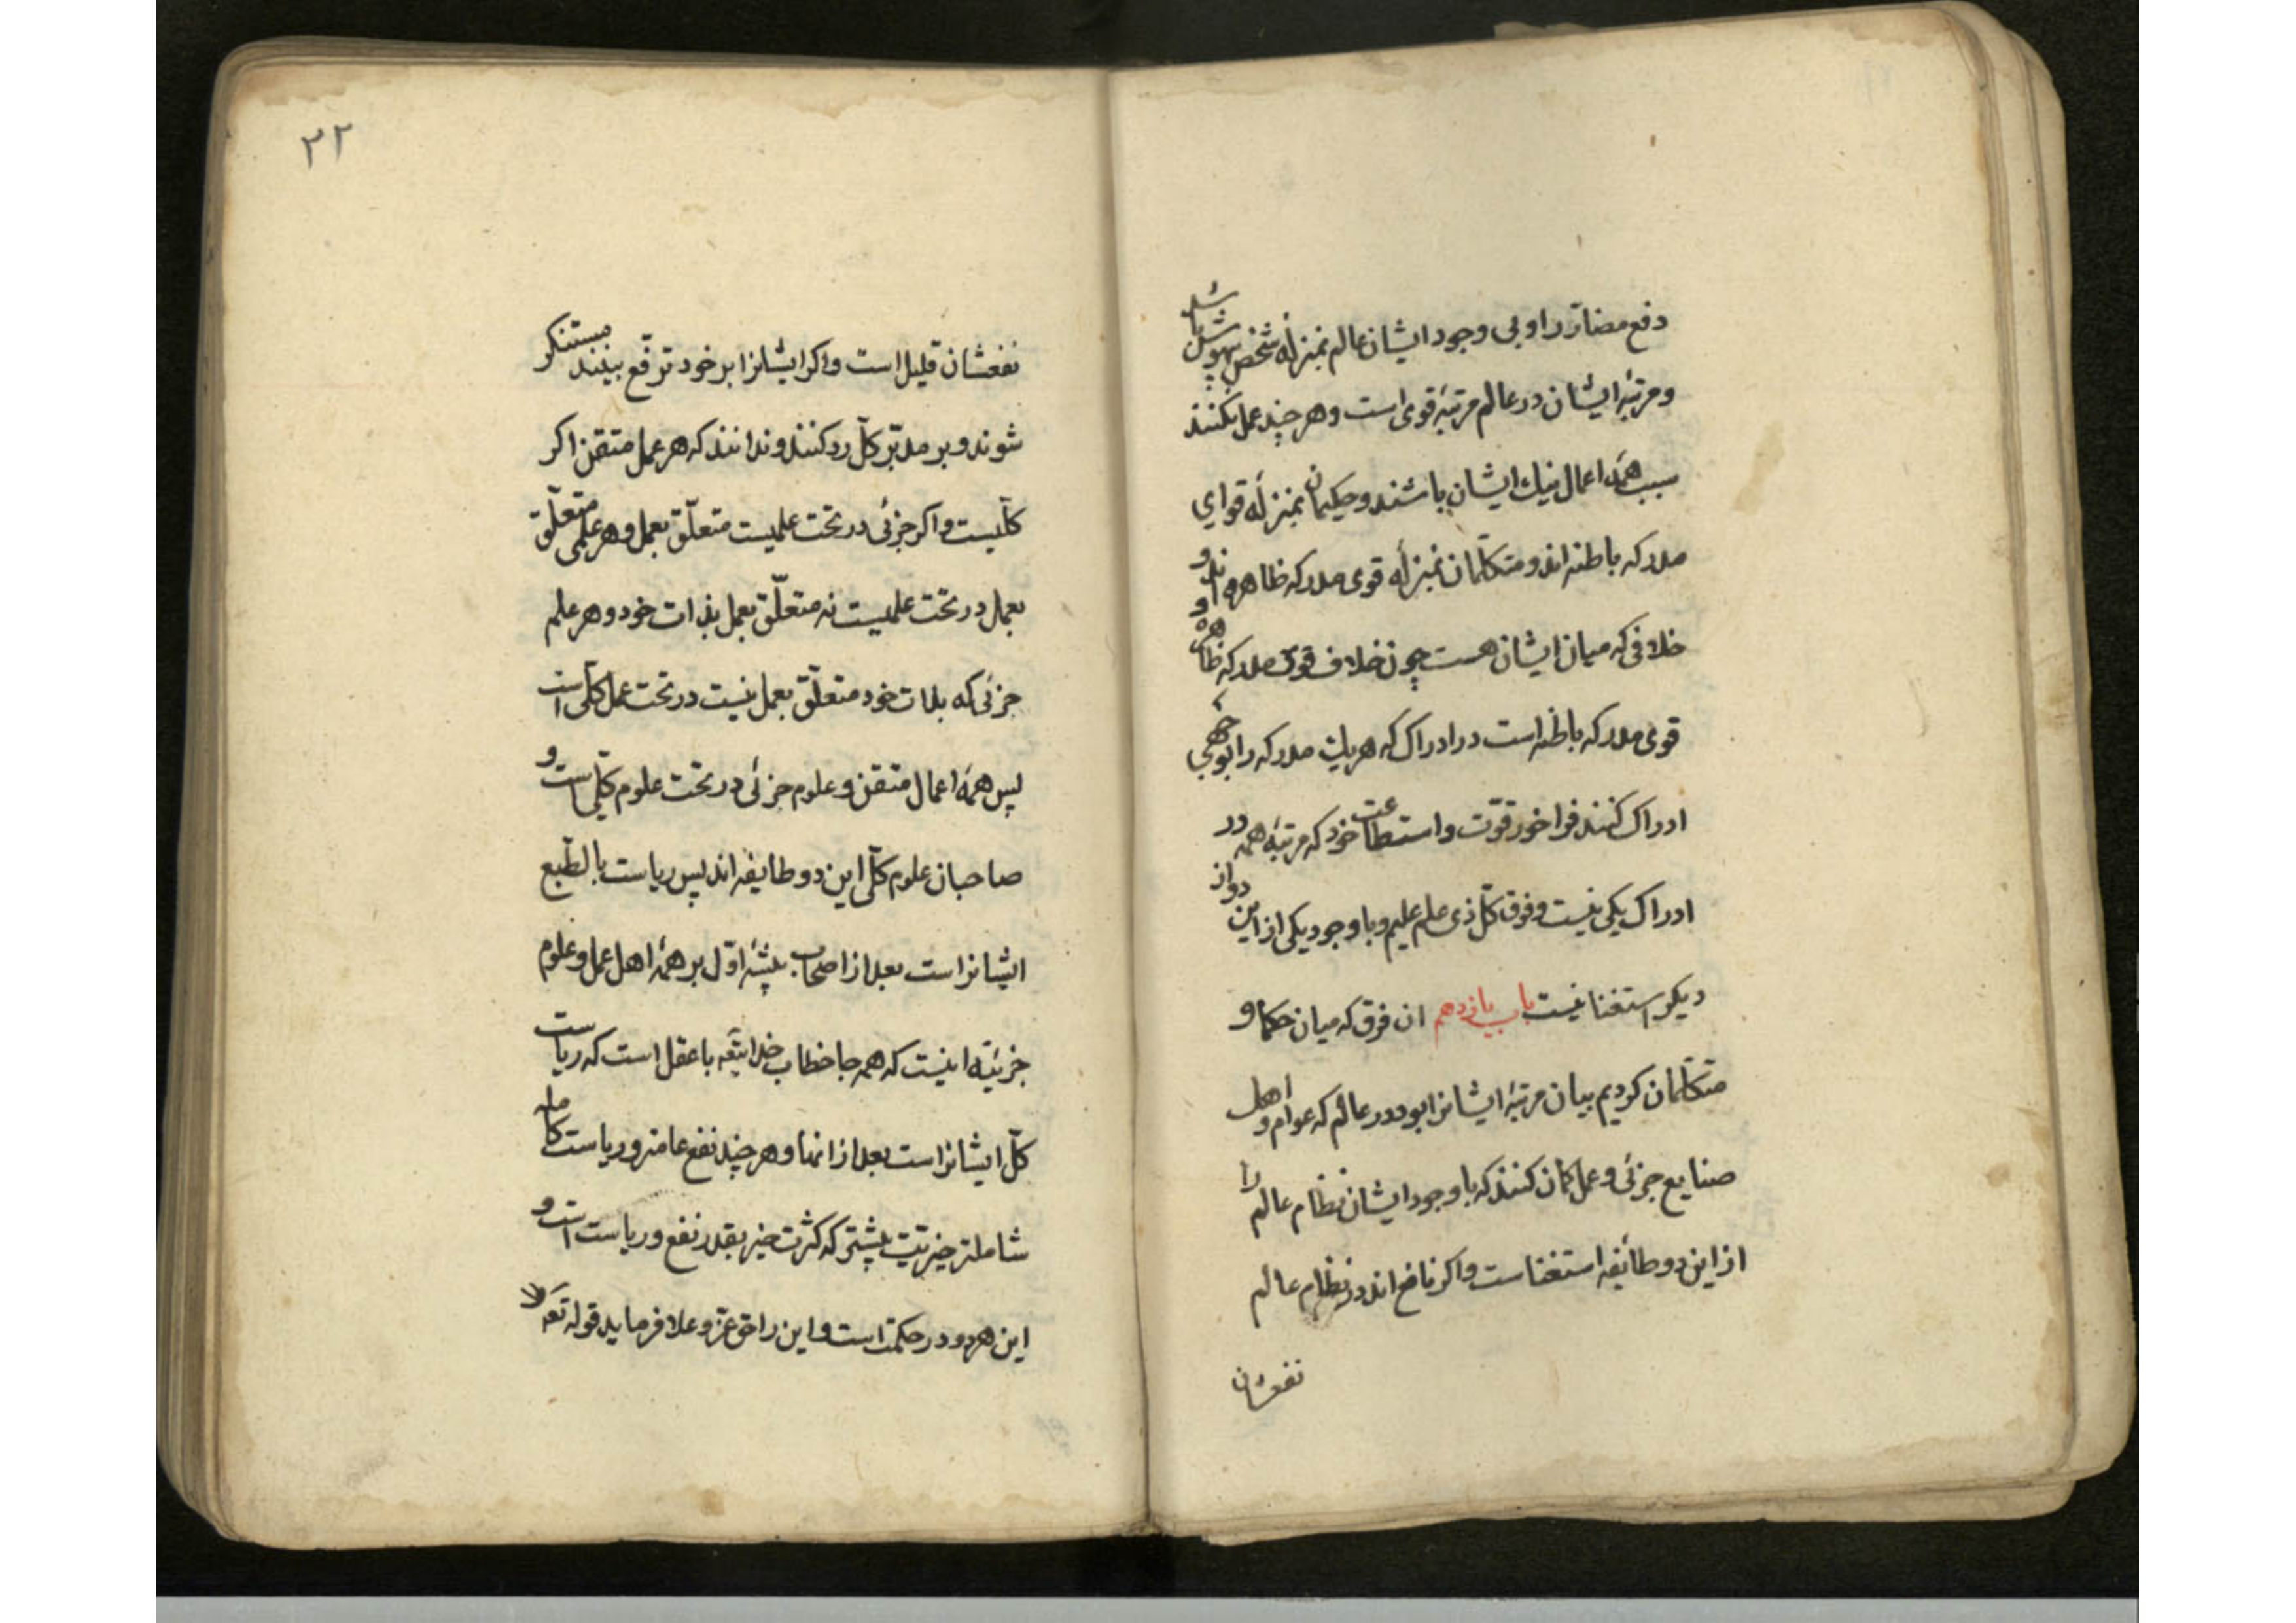 دفع مضار را و بی وجود ایشان عالم بمنزلهٔ شخص بیهوش باشد
و مرتبهٔ ایشان در عالم مرتبهٔ قوی است و هر چند عمل نکنند
سبب همهٔ اعمال نیک ایشان باشند و حکیمان بمنزلهٔ قوای
مدرکه باطنه اند و متکلّمان بمنزلهٔ قوی مدرکه ظاهره اند و
خلافی که میان ایشان هست چون خلاف قوی مدرکه ظاهره و
قوی مدرکه باطنه است در ادراک که هر یک مدرکه را بوجهی
ادراک کنند فراخور قوّت و استطاعت خود که مرتبهٔ همه در
ادراک یکی نیست و فوق کلّ ذی علم علیم و با وجود یکی از این دو از
دیگر استغنا نیست باب یازدهم ان فرق که میان حکما و
متکلّمان کردیم بیان مرتبهٔ ایشانرا بود در عالم که عوام و اهل
صنایع جزئی و عمل کمان کنند که با وجود ایشان نظام عالم را
از این دو طائفه استغناست و اکر نافع اند در نظام عالم
نفعشان
۲۲
نفعشان قلیل است و اکر ایشانرا بر خود ترفّع بینند مستنکر
شوند و بر مدبّر کلّ رد کنند و ندانند که هر عمل متقن اکر
کلّیست و اکر جزئی در تحت علمیست متعلّق بعمل و هر علمی متعلّق
بعمل در تحت علمیست نه متعلّق بعمل بذات خود و هر علم
جزئی که بذات خود متعلّق بعمل نیست در تحت عمل کلّی است
پس همهٔ اعمال متقن و علوم جزئی در تحت علوم کلّی است و
صاحبان علوم کلّی این دو طایفه اند پس ریاست بالطّبع
ایشانراست بعد از اصحاب پیشهٔ اوّل بر همهٔ اهل عمل و علوم
جزئیّه اینست که همه جا خطاب خدایتعه با عقل است که ریاست
کلّ ایشانراست بعد از انبیا و هر چند نفع عامتر و ریاست کامله
شاملتر خیریّت بیشتر که کثرت خیر بقدر نفع و ریاست است و
این هر دو در حکمت است و این را حق عزّ و علا فرماید قوله تعه